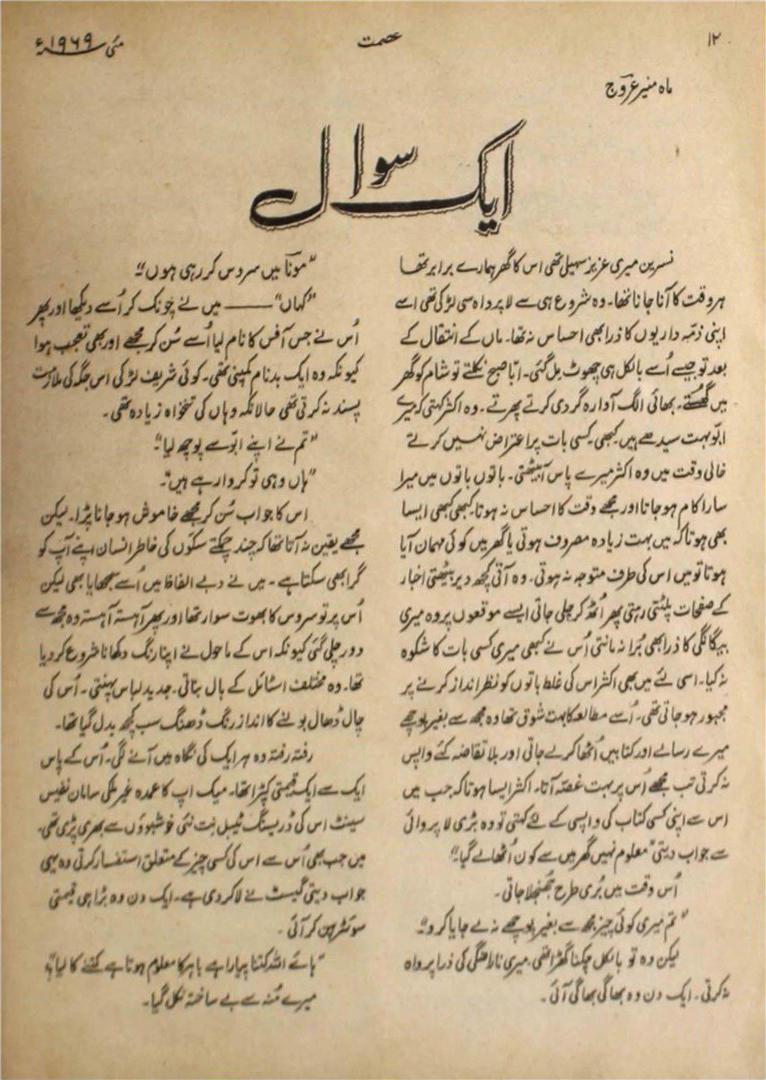 ۱۲
عصمت
مئی ۱۹۶۹ء
ماہ منیر عروج
ایک سوال
نسرین میری عزیز سہیلی تھی اس کا گھر ہمارے برابر تھا
ہر وقت کا آنا جانا تھا۔ وہ شروع ہی سے لاپرواہ سی لڑکی تھی اسے
اپنی ذمہ داریوں کا ذرا بھی احساس نہ تھا۔ ماں کے انتقال کے
بعد تو جیسے اُسے بالکل ہی چھوٹ مل گئی۔ ابّا صبح نکلتے تو شام کو گھر
میں گھستے۔ بھائی الگ آوارہ گردی کرتے پھرتے۔ وہ اکثر کہتی کہ میرے
ابّو بہت سیدھے ہیں کبھی کسی بات پر اعتراض نہیں کرتے
خالی وقت میں وہ اکثر میرے پاس آبیٹھتی۔ باتوں باتوں میں میرا
سارا کام ہو جاتا اور مجھے وقت کا احساس نہ ہوتا۔ کبھی کبھی ایسا
بھی ہوتا کہ میں بہت زیادہ مصروف ہوتی یا گھر میں کوئی مہمان آیا
ہوتا تو میں اس کی طرف متوجہ نہ ہوتی۔ وہ آتی کچھ دیر بیٹھتی اخبار
کے صفحات پلٹتی رہتی پھر اُٹھ کر چلی جاتی ایسے موقعوں پر وہ میری
بیگانگی کا ذرا بھی بُرا نہ مانتی اُس نے کبھی میری کسی بات کا شکوہ
نہ کیا۔ اسی لئے میں بھی اکثر اس کی غلط باتوں کو نظر انداز کرنے پر
مجبور ہو جاتی تھی۔ اُسے مطالعہ کا بہت شوق تھا وہ مجھ سے بغیر پوچھے
میرے رسالے اور کتابیں اُٹھا کر لے جاتی اور بلا تقاضہ کئے واپس
نہ کرتی تب مجھے اُس پر بہت غصّہ آتا۔ اکثر ایسا ہوتا کہ جب میں
اس سے اپنی کسی کتاب کی واپسی کے لئے کہتی تو وہ بڑی لاپروائی
سے جواب دیتی "معلوم نہیں گھر میں سے کون اُٹھا لے گیا"
اُس وقت میں بُری طرح جھنجلا جاتی۔
"تم میری کوئی چیز مجھ سے بغیر پوچھے نہ لے جایا کرو"
لیکن وہ تو بالکل چکنا گھڑا تھی، میری ناراضگی کی ذرا پرواہ
نہ کرتی۔ ایک دن وہ بھاگی بھاگی آئی۔
"مونا میں سروس کر رہی ہوں"
"کہاں" ——— میں نے چونک کر اُسے دیکھا اور پھر
اُس نے جس آفس کا نام لیا اُسے سُن کر مجھے اور بھی تعجب ہوا
کیونکہ وہ ایک بدنام کمپنی تھی۔ کوئی شریف لڑکی اس جگہ کی ملازمت
پسند نہ کرتی تھی حالانکہ وہاں کی تنخواہ زیادہ تھی۔
"تم نے اپنے ابّو سے پوچھ لیا"
"ہاں وہی تو کروا رہے ہیں"۔
اس کا جواب سُن کر مجھے خاموش ہو جانا پڑا۔ لیکن
مجھے یقین نہ آتا تھا کہ چند چمکتے سکّوں کی خاطر انسان اپنے آپ کو
گرا بھی سکتا ہے۔ میں نے دبے الفاظ میں اُسے سمجھایا بھی لیکن
اُس پر تو سروس کا بھوت سوار تھا اور پھر آہستہ آہستہ وہ مجھ سے
دور چلی گئی کیونکہ اس کے ماحول نے اپنا رنگ دکھانا شروع کر دیا
تھا۔ وہ مختلف اسٹائل کے بال بناتی۔ جدید لباس پہنتی۔ اُس کی
چال ڈھال بولنے کا انداز رنگ ڈھنگ سب کچھ بدل گیا تھا۔
رفتہ رفتہ وہ ہر ایک کی نگاہ میں آنے لگی۔ اُس کے پاس
ایک سے ایک قیمتی کپڑا تھا۔ میک اپ کا عمدہ غیر ملکی سامان نفیس
سینٹ اس کی ڈریسنگ ٹیبل نِت نئی خوشبوؤں سے بھری پڑی تھی۔
میں جب بھی اُس سے اس کی کسی چیز کے متعلق استفسار کرتی وہ یہی
جواب دیتی گیسٹ نے لاکر دی ہے۔ ایک دن وہ بڑا ہی قیمتی
سوئٹر پہن کر آئی۔
"ہائے اللہ کتنا پیارا ہے باہر کا معلوم ہوتا ہے کتنے کا لیا"
میرے مُنہ سے بے ساختہ نکل گیا۔